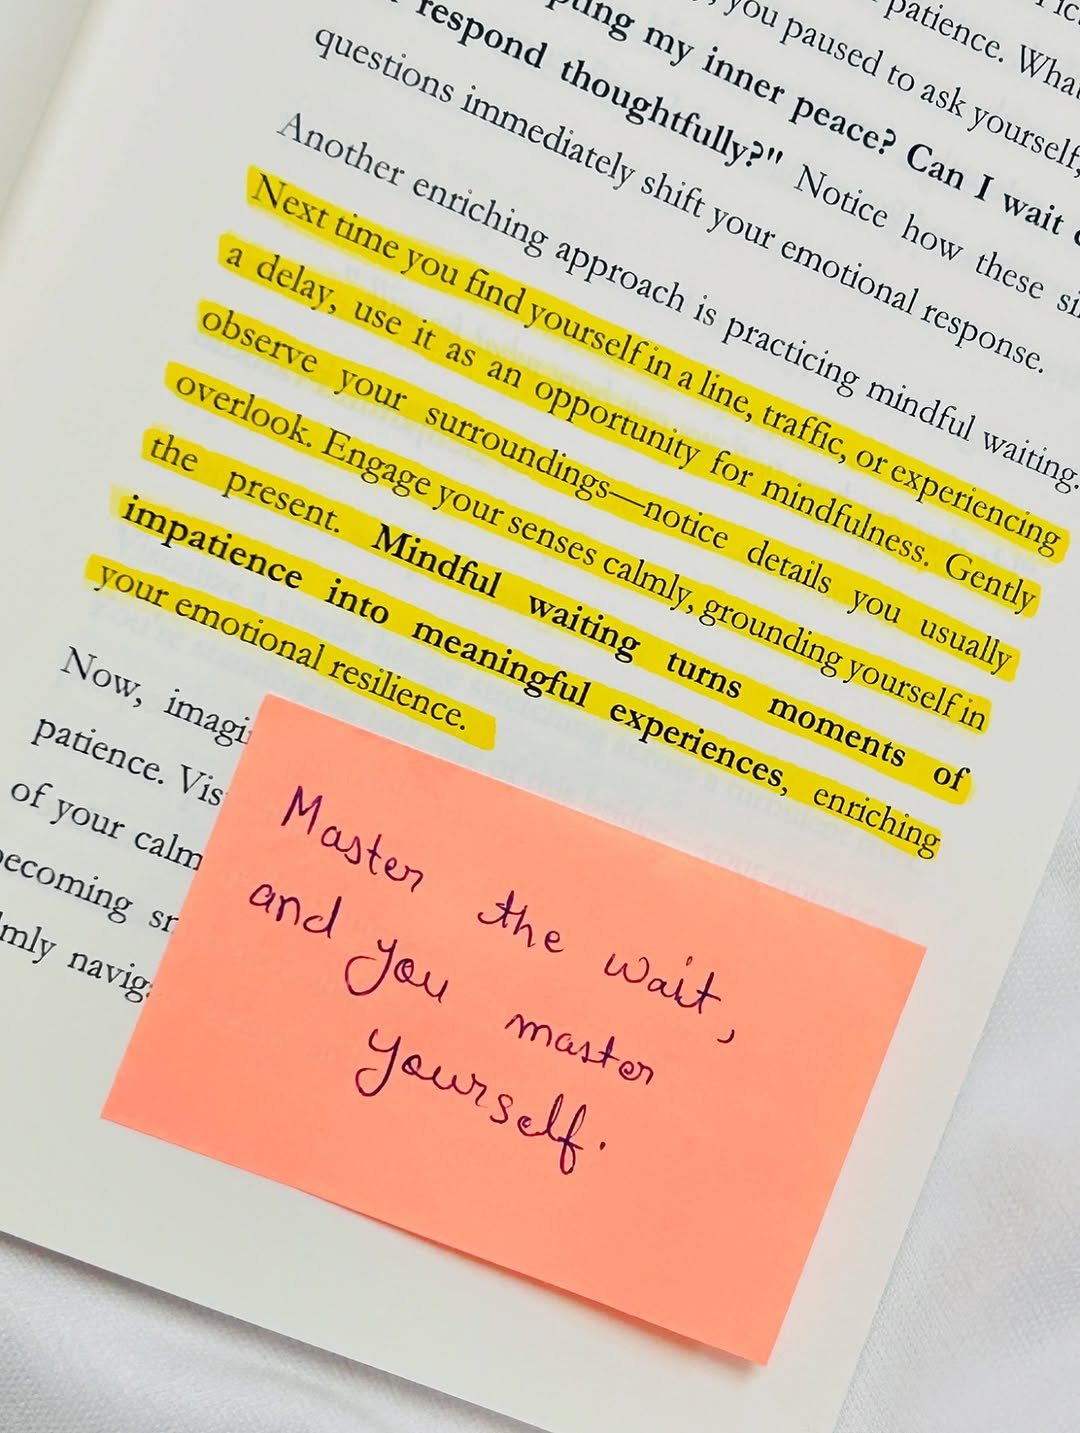 patience. What
you paused to ask yourself,
my inner peace? Can I wait
respond thoughtfully?" Notice how these
questions immediately shift your emotional response.
Another enriching approach is practicing mindful waiting.
Next time you find yourself in a line, traffic, or experiencing
a delay, use it as an opportunity for mindfulness. Gently
observe your surroundings—notice details you usually
overlook. Engage your senses calmly, grounding yourself in
the present. Mindful waiting turns moments of
impatience into meaningful experiences, enriching
your emotional resilience.
Now,
patience.
of your calm
Master the wait,
and you master
yourself.